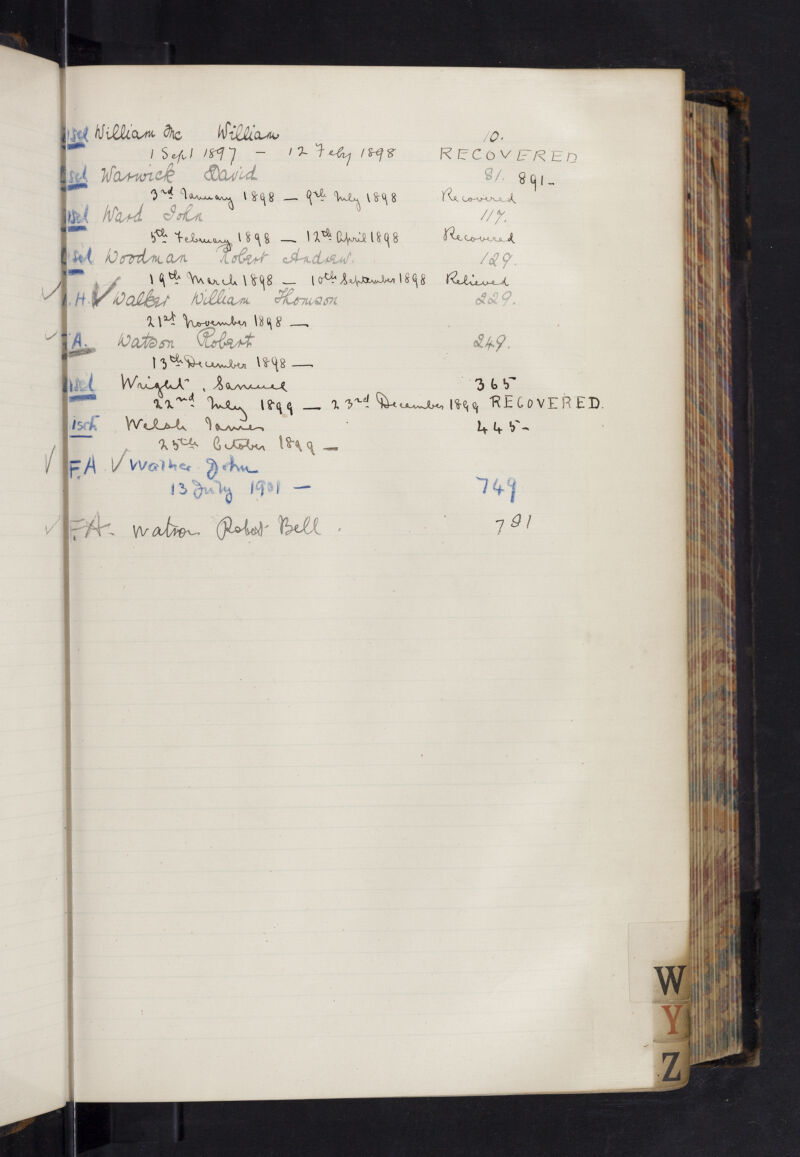 William Mc William 10.
1 Sept 1897 — 12 Feby 1898 RECOVERED
Warwick David 81. 891-
3rd January 1898 — 9th July 1898 Recovered
Ward John 117.
5th February 1898 — 12th April 1898 Recovered
Woodman Robert Andrew. 129.
19th March 1898 — 10th September 1898 Relieved
✓ .H. ✓ Walker William Thomson 229.
21st November 1898 —
✓ A. Watson Robert 249.
13th December 1898 —
Wright, Samuel 365
22nd July 1899 — 23rd December 1899 RECOVERED.
Welsh James 445-
25th October 1899 —
✓ F.A ✓ Walker John
13 July 1901 — 749
✓ F.A. Watson Robert Bell. 791
W
Y
Z